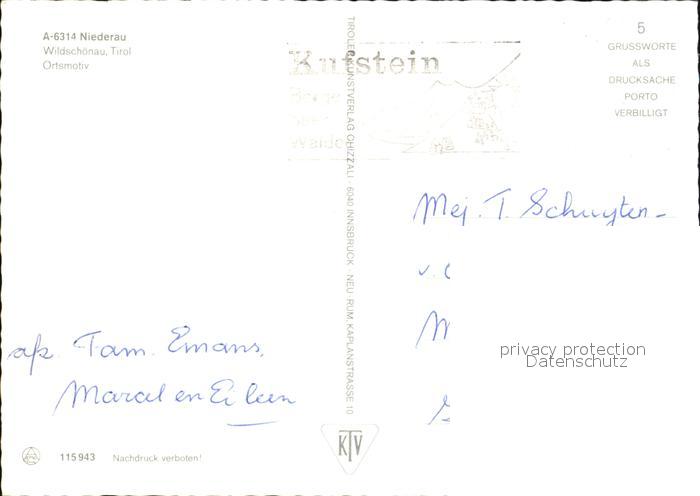 A-6314 Niederau
Wildschönau, Tirol
Ortsmotiv
Kufstein
Berge
Seen
Wälder
5
GRUSSWORTE
ALS
DRUCKSACHE
PORTO
VERBILLIGT
TIROLER KUNSTVERLAG CHIZZALI · 6040 INNSBRUCK · NEU-RUM, KAPLANSTRASSE 10
Mej. T. Schuyten-
v.
privacy protection
Datenschutz
afz. Fam. Emans,
Marcel en Eileen
115943 Nachdruck verboten!
KTV